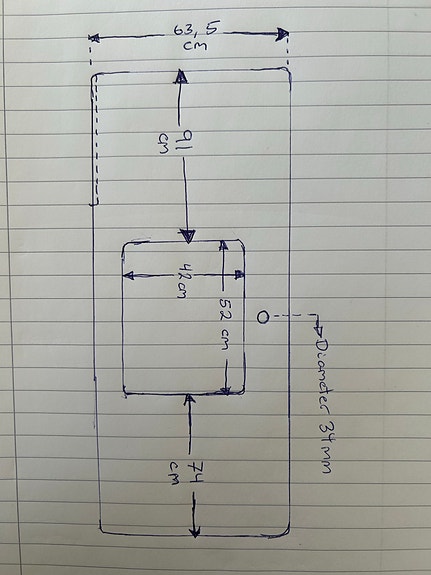 63,5
cm
91
cm
42cm
52 cm
Diameter 34mm
74
cm